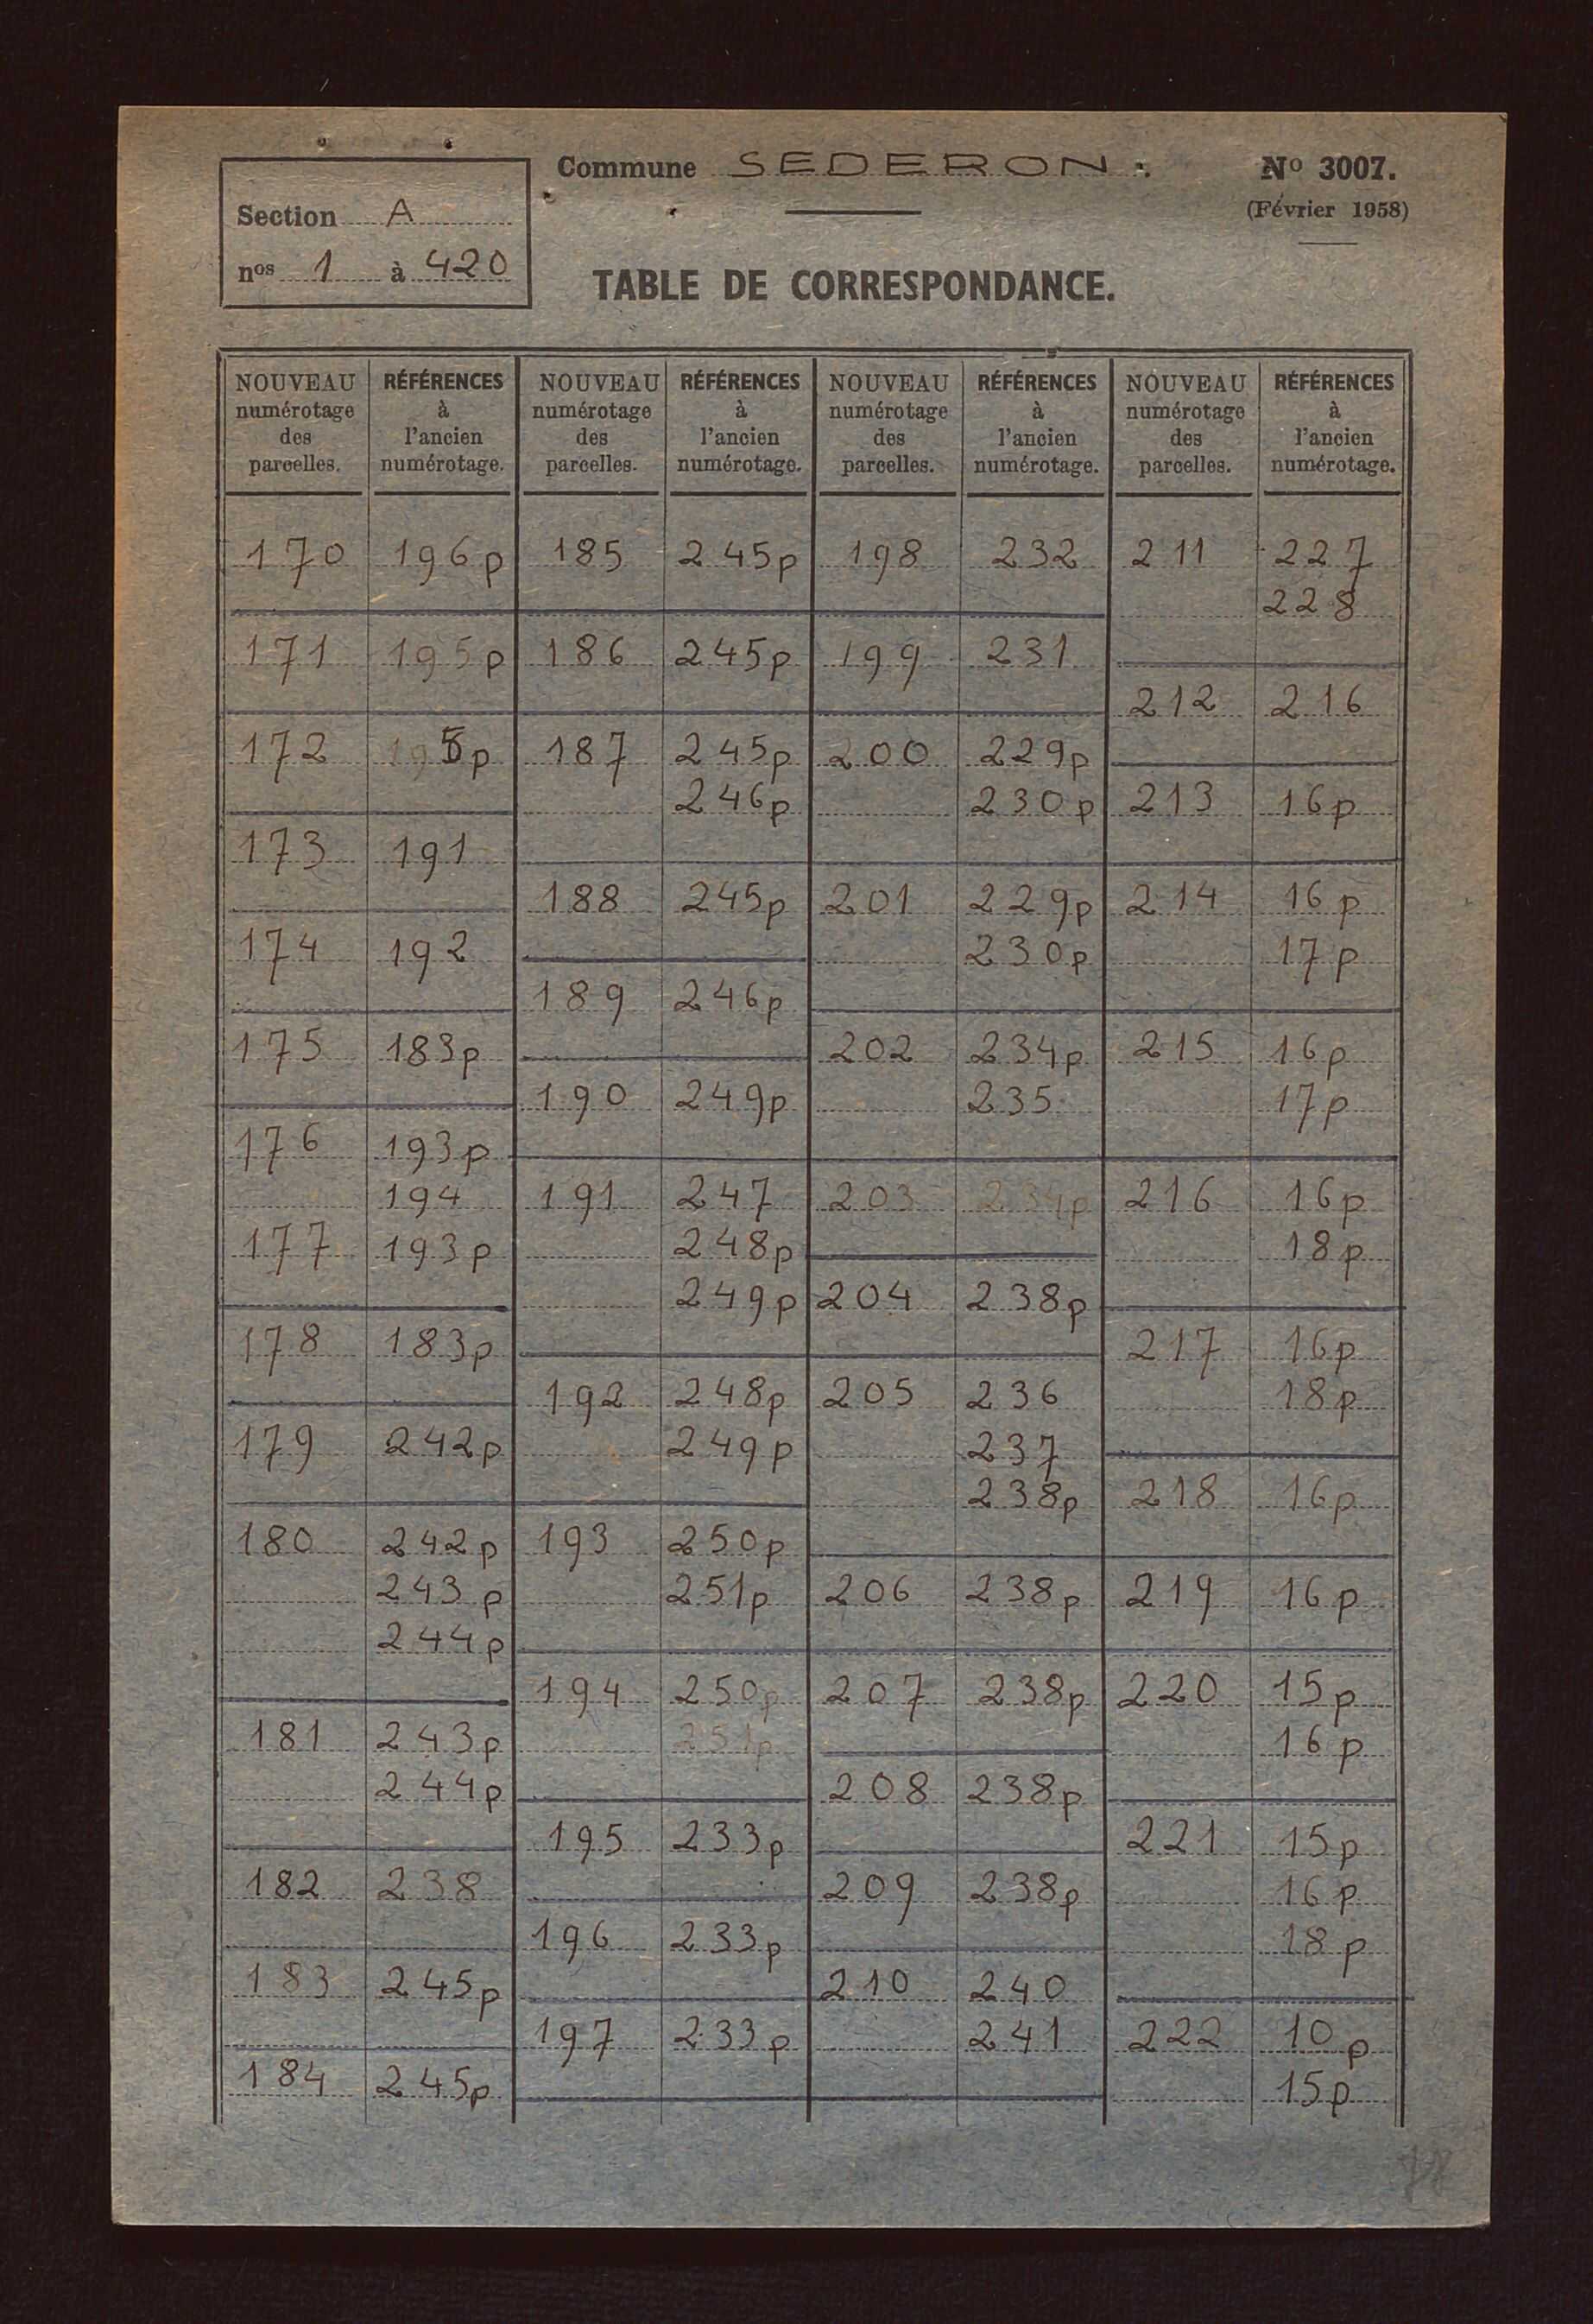 Commune SEDERON.
No 3007.
(Février 1958)
Section A
nos 1 à 420
TABLE DE CORRESPONDANCE.
NOUVEAU numérotage des parcelles. RÉFÉRENCES à l'ancien numérotage.
170 196p
171 195p
172 195p
173 191
174 192
175 183p
176 193p
194
177 193p
178 183p
179 242p
180 242p
243p
244p
181 243p
244p
182 238
183 245p
184 245p
NOUVEAU numérotage des parcelles. RÉFÉRENCES à l'ancien numérotage.
185 245p
186 245p
187 245p
246p
188 245p
189 246p
190 249p
191 247
248p
249p
192 248p
249p
193 250p
251p
194 250p
251p
195 233p
196 233p
197 233p
NOUVEAU numérotage des parcelles. RÉFÉRENCES à l'ancien numérotage.
198 232
199 231
200 229p
230p
201 229p
230p
202 234p
235
203 234p
204 238p
205 236
237
238p
206 238p
207 238p
208 238p
209 238p
210 240
241
NOUVEAU numérotage des parcelles. RÉFÉRENCES à l'ancien numérotage.
211 227
228
212 216
213 16p
214 16p
17p
215 16p
17p
216 16p
18p
217 16p
18p
218 16p
219 16p
220 15p
16p
221 15p
16p
18p
222 10p
15p